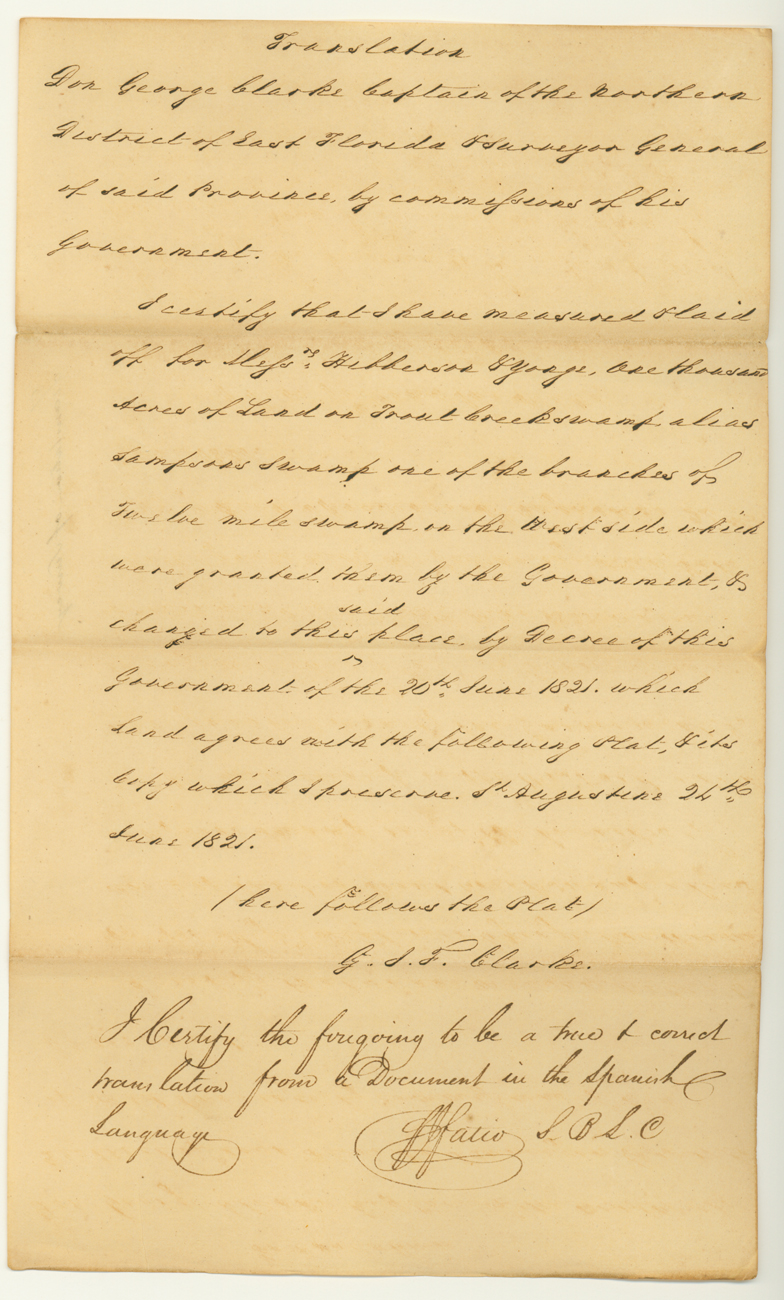 Translation
Don George Clarke Captain of the Northern
District of East Florida & Surveyor General
of said Province, by commissions of his
Government.
I certify that I have measured & laid
off for Messrs. Hibberson & Yonge, One thousand
Acres of Land on Trout Creek swamp, alias
Sampsons Swamp one of the branches of
Twelve mile swamp, on the West side which
were granted them by the Government, &
said
changed to this place, by Decree of this
Government of the 20th June 1821. which
Land agrees with the following Plat, & its
Copy which I preserve. St Augustine 24th
June 1821.
(here follows the Plat)
G. J. F. Clarke.
I Certify the foregoing to be a true & correct
translation from a Document in the Spanish
Language
Fatio S. B. L. C